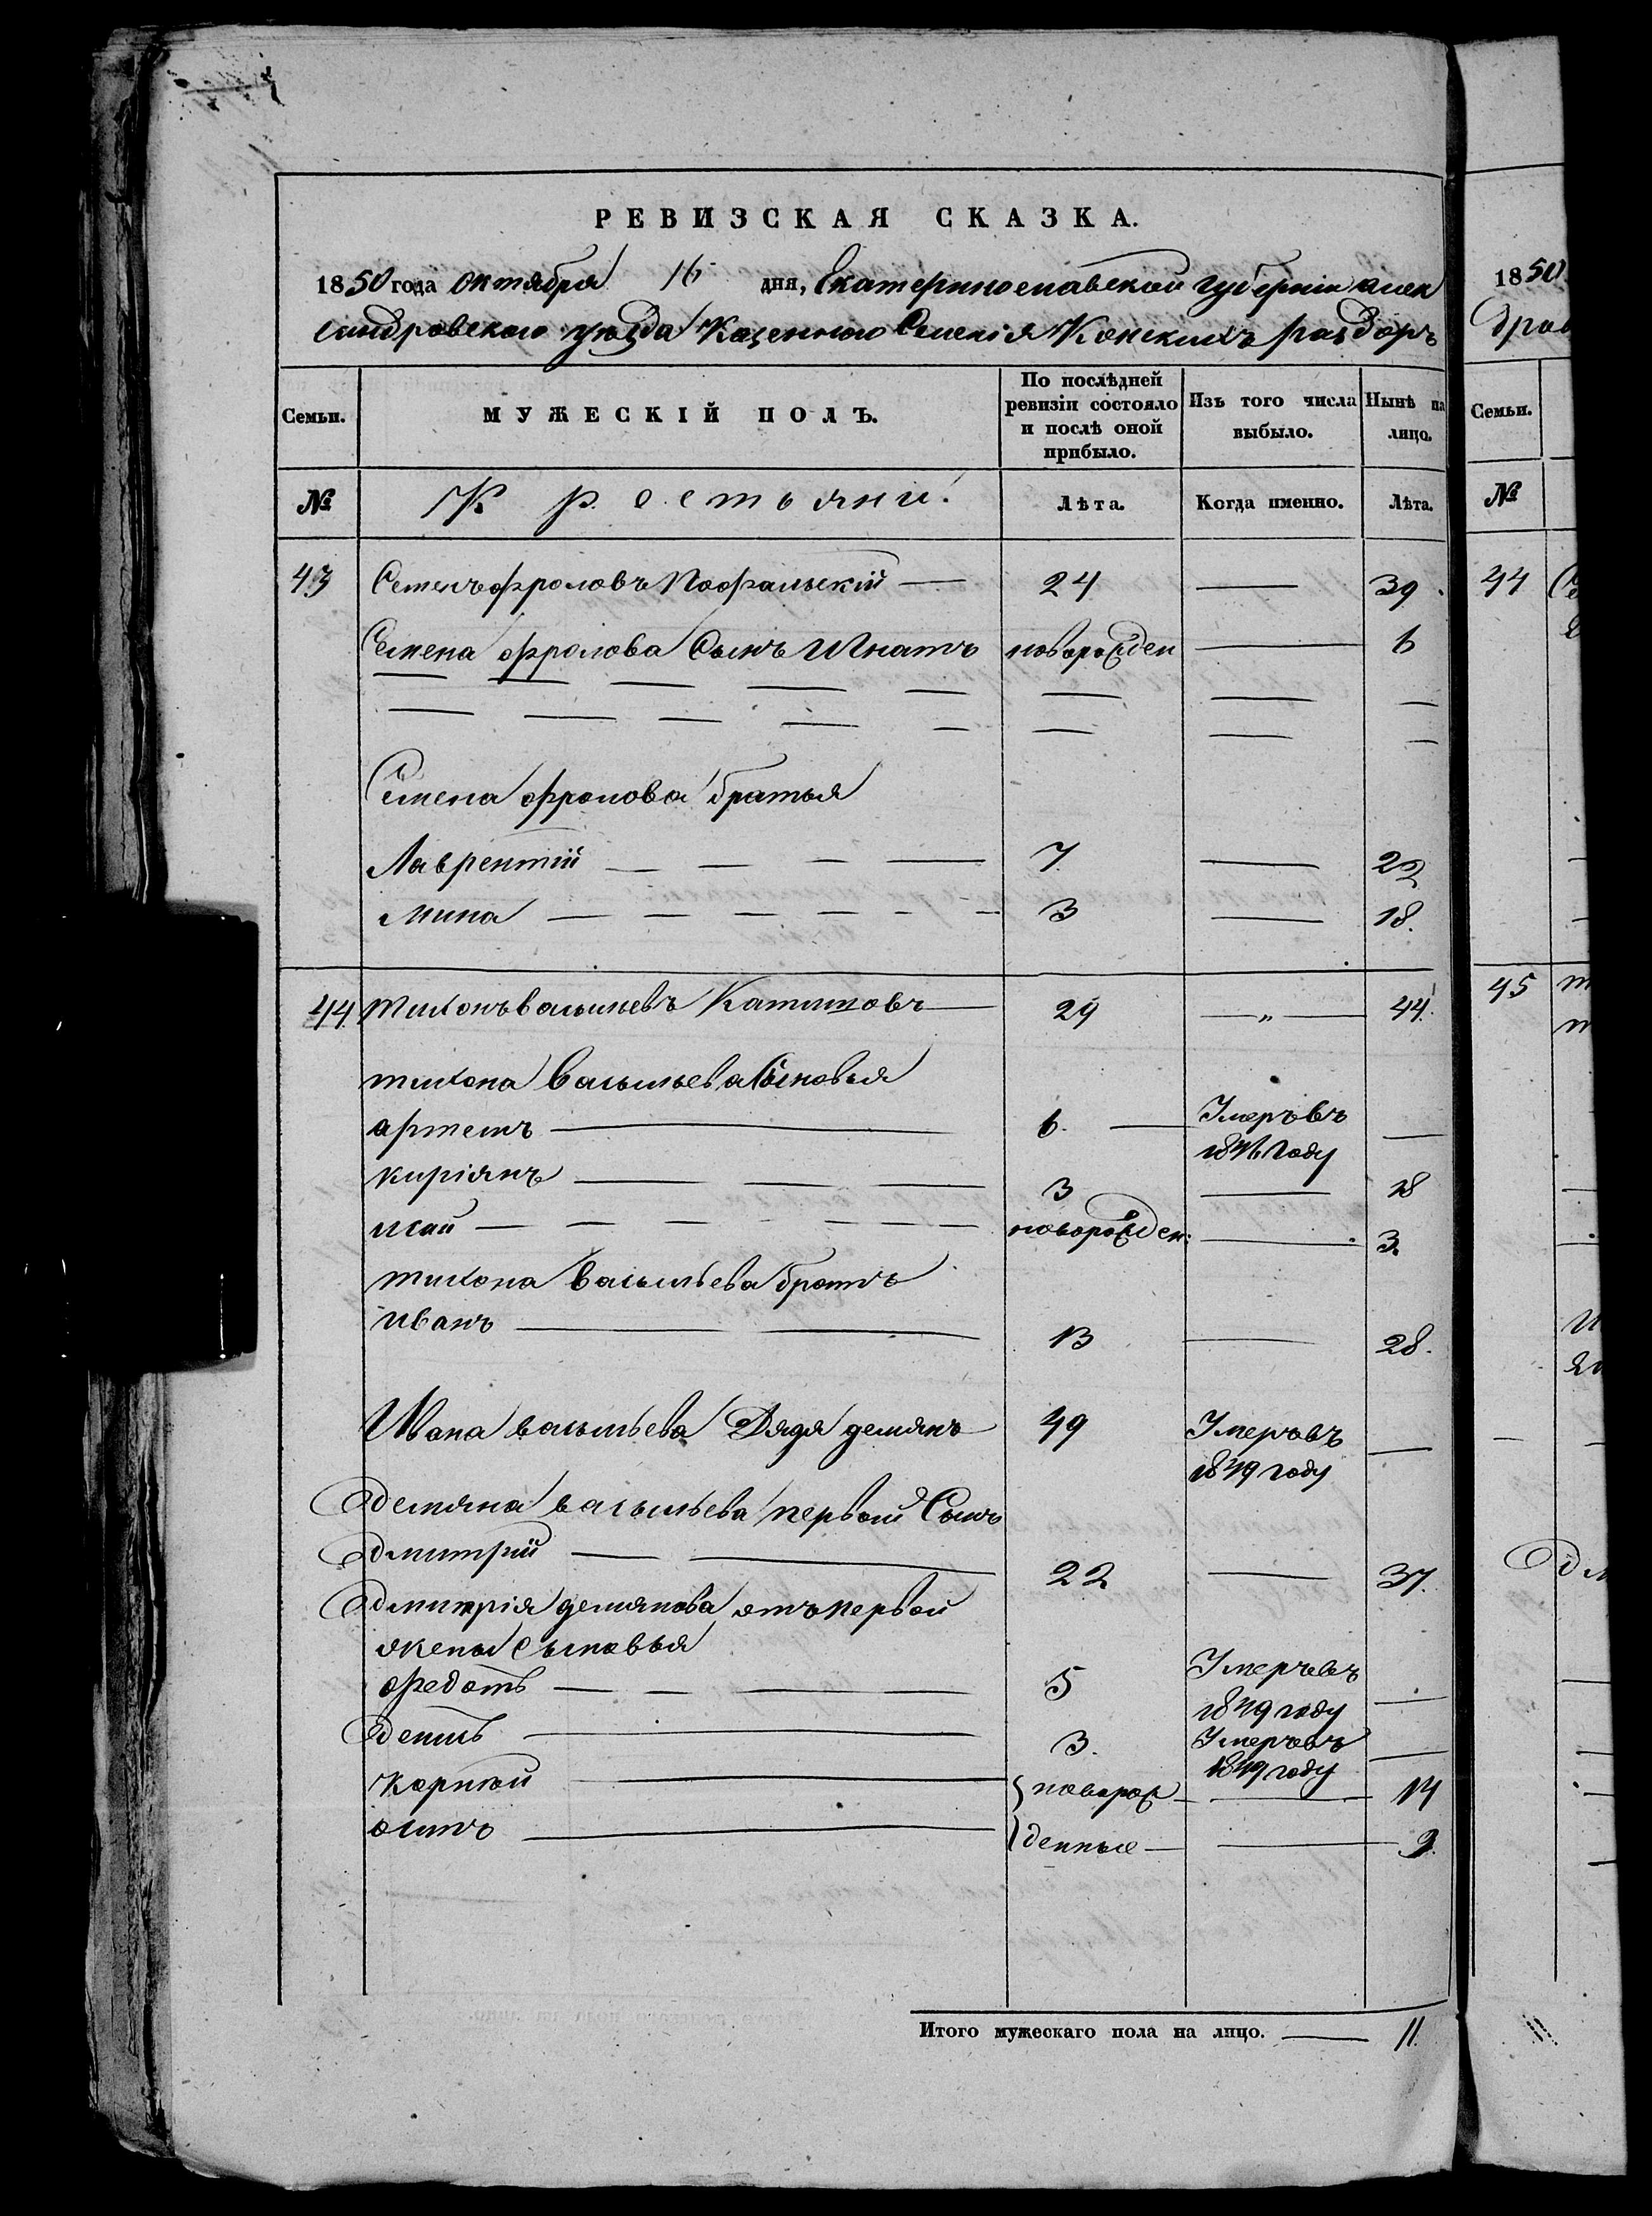 РЕВИЗСКАЯ СКАЗКА.
1850 года октября 16 дня, Екатеринославской губерніи алек
сандровского уезда Казенного Селенія Конскихъ раздоръ
Семьи. МУЖЕСКІЙ ПОЛЪ. По послѣдней ревизіи состояло и послѣ оной прибыло. Изъ того числа выбыло. Нынѣ на лицо.
№ Крестьяни. Лѣта. Когда именно. Лѣта.
43 Семенъ фроловъ 24 — 39.
Семена фролова Сынъ Игнатъ новорожден — 6
Семена фролова братья
Лаврентій — 7 — 22
Мина — 3 — 18.
44 тихонъ васильевъ — 29 —„— 44.
тихона васильева Сыновья
артемъ — 6. — Умеръ въ 1846 году —
киріянъ — 3 — 18
исай — новорожден: — 3
тихона васильева братъ
иванъ — 13 — 28.
Ивана васильева Дядя демянъ 49 Умеръ въ 1849 году —
демяна васильева первой Сынъ
дмитрій — 22 — 37.
дмитрія демянова отъ первой
жены сыновья
федотъ — 5 Умеръ въ 1849 году —
денисъ — 3. Умеръ въ 1849 году —
корней — } новорож — 14
осипъ — } денные — 9.
Итого мужескаго пола на лицо. — 11.
1850
Семьи.
№
44
45